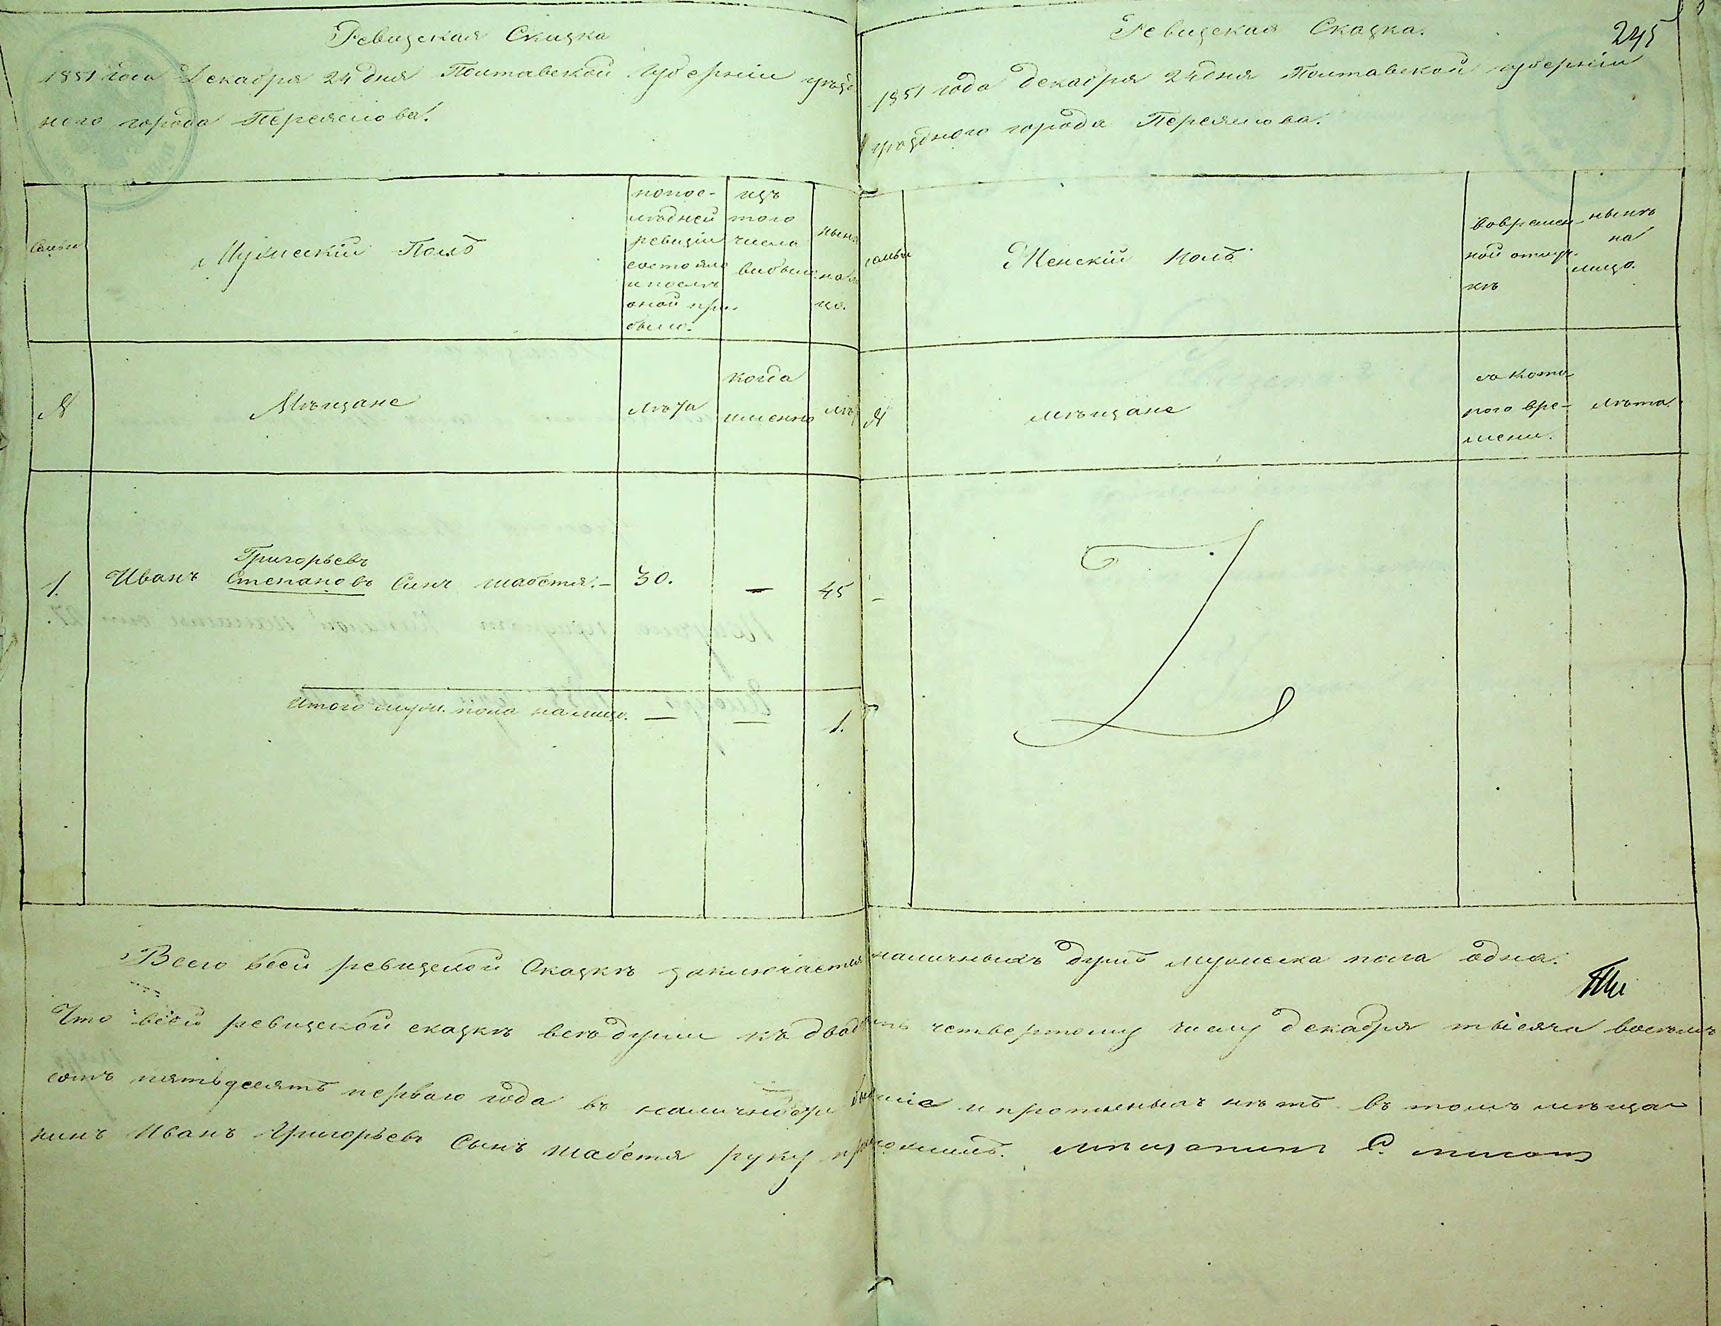 Ревизская Сказка
1851 года Декабря 24 дня Полтавской Губерніи уѣзд
ного города Переяслова.
Семьи
Мужескій Полъ
попос-
лѣдней
ревизіи
состояло
и послѣ
оной при-
было.
изъ
того
числа
выбыло
нынѣ
на ли
цо.
№
Мѣщане
лѣта
когда
именно
лѣ
1.
Иванъ Степановъ Сынъ Шабстя. –
Григорьевъ
30.
—
45
Итого муж. пола налицо. —
—
1.
Ревизская Сказка.
245
1851 года Декабря 24 дня Полтавской губерніи
уѣздного города Переяслова.
семьи
Женскій полъ
вовремен-
ной отлуч-
кѣ
нынѣ
на
лицо.
№
мѣщане
съ кото
рого вре-
мени.
лѣта.
–
Всего всей ревизской Сказкѣ заключается наличныхъ душъ мужеска пола одна.
Что всей ревизской сказкѣ всѣ души къ двадцать четвертому числу декабря тысяча восемь
сотъ пятьдесятъ перваго года въ наличности и прописныхъ нѣтъ въ томъ мѣща-
нинъ Иванъ Григорьевъ Сынъ Шабстя руку приложилъ. мѣщанинъ